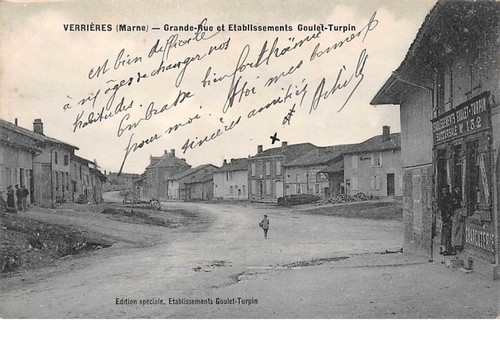 VERRIÈRES (Marne) — Grande-Rue et Etablissements Goulet-Turpin
est bien difficile
à n/ âges de changer nos
habitudes.
Embrasse bien
pour moi.
à toi mes bonnes et
sincères amitiés
ETABLISSEMENTS GOULET-TURPIN
SUCCURSALE Nº 132
Edition spéciale, Etablissements Goulet-Turpin